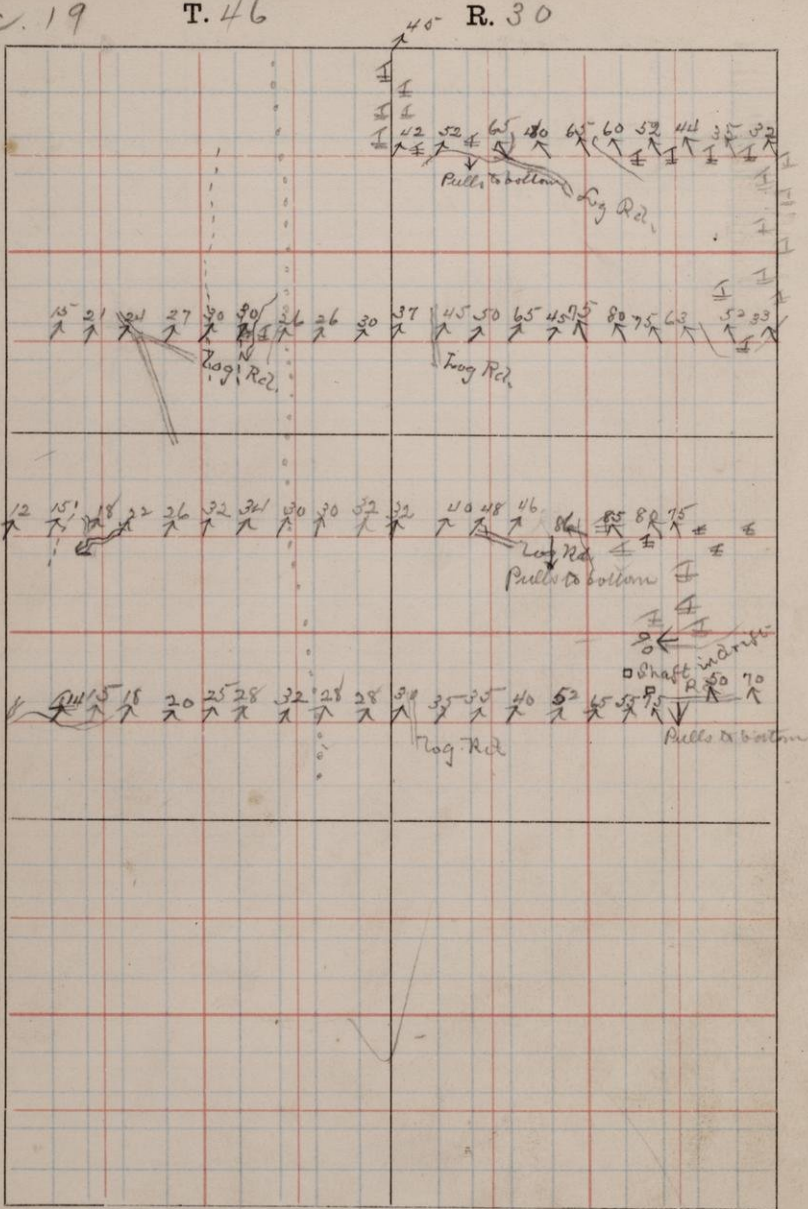 19 T. 46 R. 30
45
42 52 65 80 65 60 52 44 35 32
Pulls to bottom
Lg Rd.
15 21 24 27 30 30 26 26 30 37 45 50 65 45 75 80 75 63 52 33
Log Rd. Log Rd.
12 15 18 22 26 32 34 30 30 32 32 40 48 46 86 85 80 75
Log Rd
Pulls to bottom
90
Shaft in drift
14 15 18 20 25 28 32 28 28 30 35 35 40 52 65 55 75 R R 50 70
Log Rd
Pulls to bottom